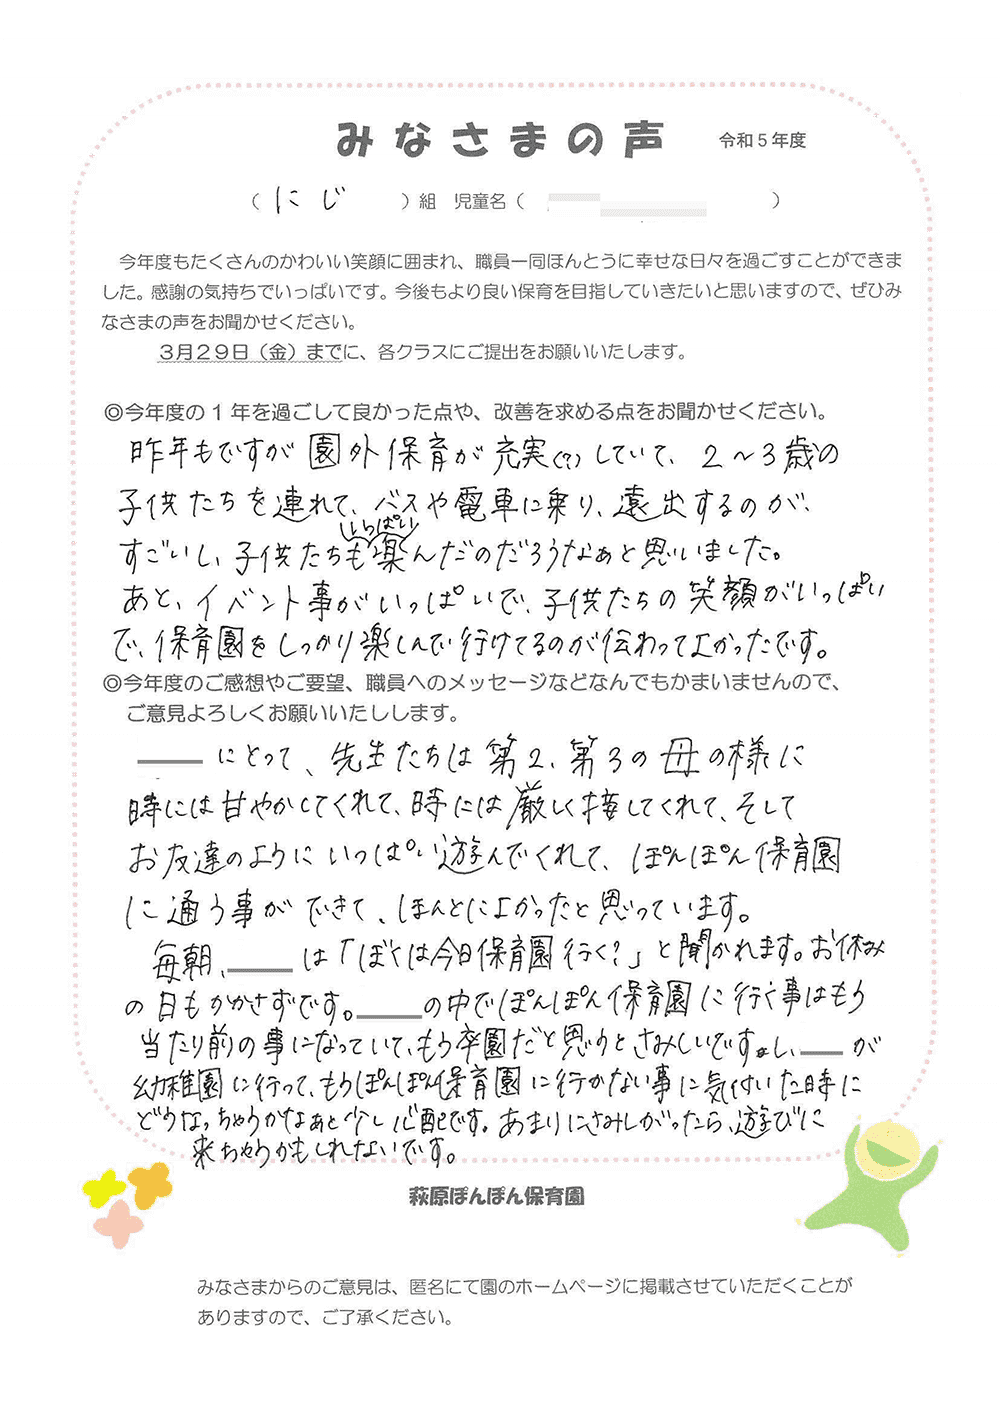 みなさまの声 令和５年度
（ にじ ）組 児童名（ ）
今年度もたくさんのかわいい笑顔に囲まれ、職員一同ほんとうに幸せな日々を過ごすことができま
した。感謝の気持ちでいっぱいです。今後もより良い保育を目指していきたいと思いますので、ぜひみ
なさまの声をお聞かせください。
３月２９日（金）までに、各クラスにご提出をお願いいたします。
◎今年度の１年を過ごして良かった点や、改善を求める点をお聞かせください。
昨年もですが園外保育が充実(?)していて、2〜3歳の
子供たちを連れて、バスや電車に乗り、遠出するのが、
すごいし、子供たちもいっぱい楽んだのだろうなぁと思いました。
あと、イベント事がいっぱいで、子供たちの笑顔がいっぱい
で、保育園をしっかり楽しんで行けてるのが伝わってよかったです。
◎今年度のご感想やご要望、職員へのメッセージなどなんでもかまいませんので、
ご意見よろしくお願いいたしします。
にとって、先生たちは第2、第3の母の様に
時には甘やかしてくれて、時には厳しく接してくれて、そして
お友達のようにいっぱい遊んでくれて、ぽんぽん保育園
に通う事ができて、ほんとによかったと思っています。
毎朝、 は「ぼくは今日保育園行く?」と聞かれます。お休み
の日もかかさずです。 の中でぽんぽん保育園に行く事はもう
当たり前の事になっていて、もう卒園だと思うとさみしいですし、 が
幼稚園に行って、もうぽんぽん保育園に行かない事に気付いた時に
どうなっちゃうかなぁと少し心配です。あまりにさみしがったら、遊びに
来ちゃうかもしれないです。
萩原ぽんぽん保育園
みなさまからのご意見は、匿名にて園のホームページに掲載させていただくことが
ありますので、ご了承ください。